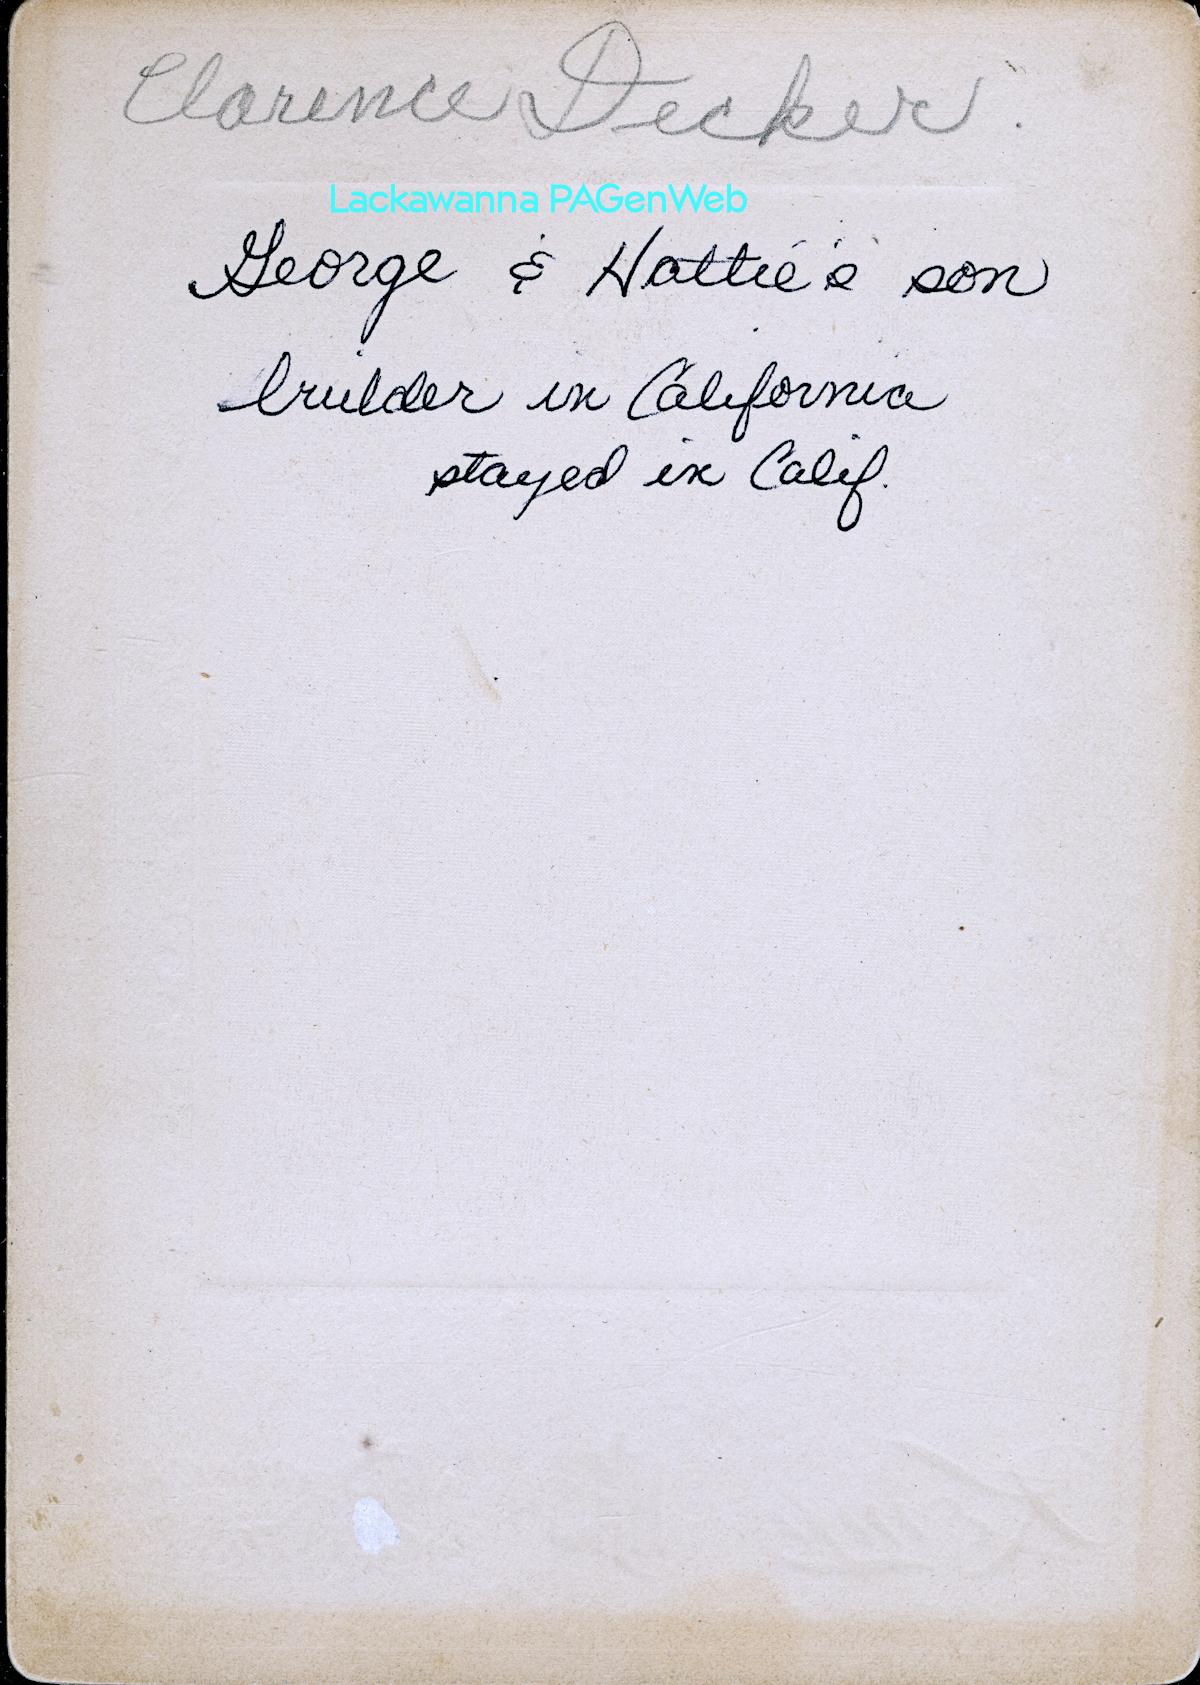 Clarence Decker.
Lackawanna PAGenWeb
George & Hattie's son
builder in California
stayed in Calif.